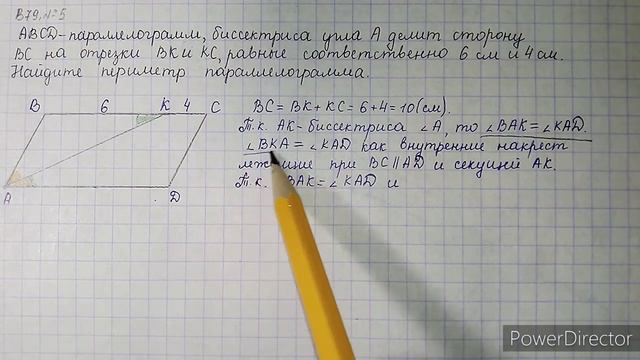 В79, №5
ABCD-параллелограмм, биссектриса угла A делит сторону
BC на отрезки BK и KC, равные соответственно 6 см и 4 см.
Найдите периметр параллелограмма.
B 6 K 4 C
A D
BC = BK + KC = 6+4 = 10 (см).
Т.к. AK- биссектриса ∠A, то ∠BAK = ∠KAD.
∠BKA = ∠KAD как внутренние накрест
лежащие при BC || AD и секущей AK.
Т.к. BAK = ∠KAD и
PowerDirector